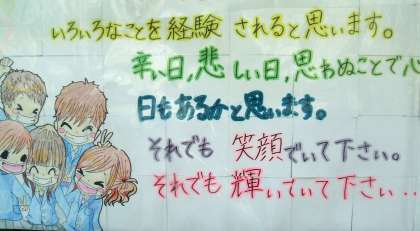 いろいろなことを経験 されると思います。
辛い日,悲しい日,思わぬことで心
日もあるかと思います。
それでも 笑顔でいて下さい。
それでも 輝いていて下さい..